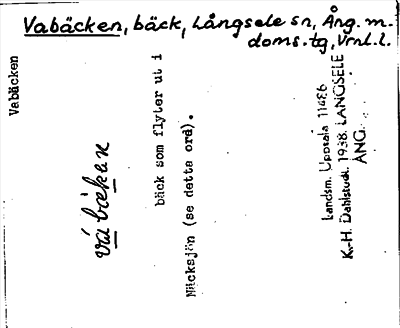 Vabäcken, bäck, Långsele sn, Ång. m.
doms. tg, Vrnl. l.
Vabäcken
vá bèkɐn
bäck som flyter ut i
Näcksjön (se detta ord).
Landsm. Uppsala 11486
K.-H. Dahlstedt. 1938. LÅNGSELE
ÅNG.